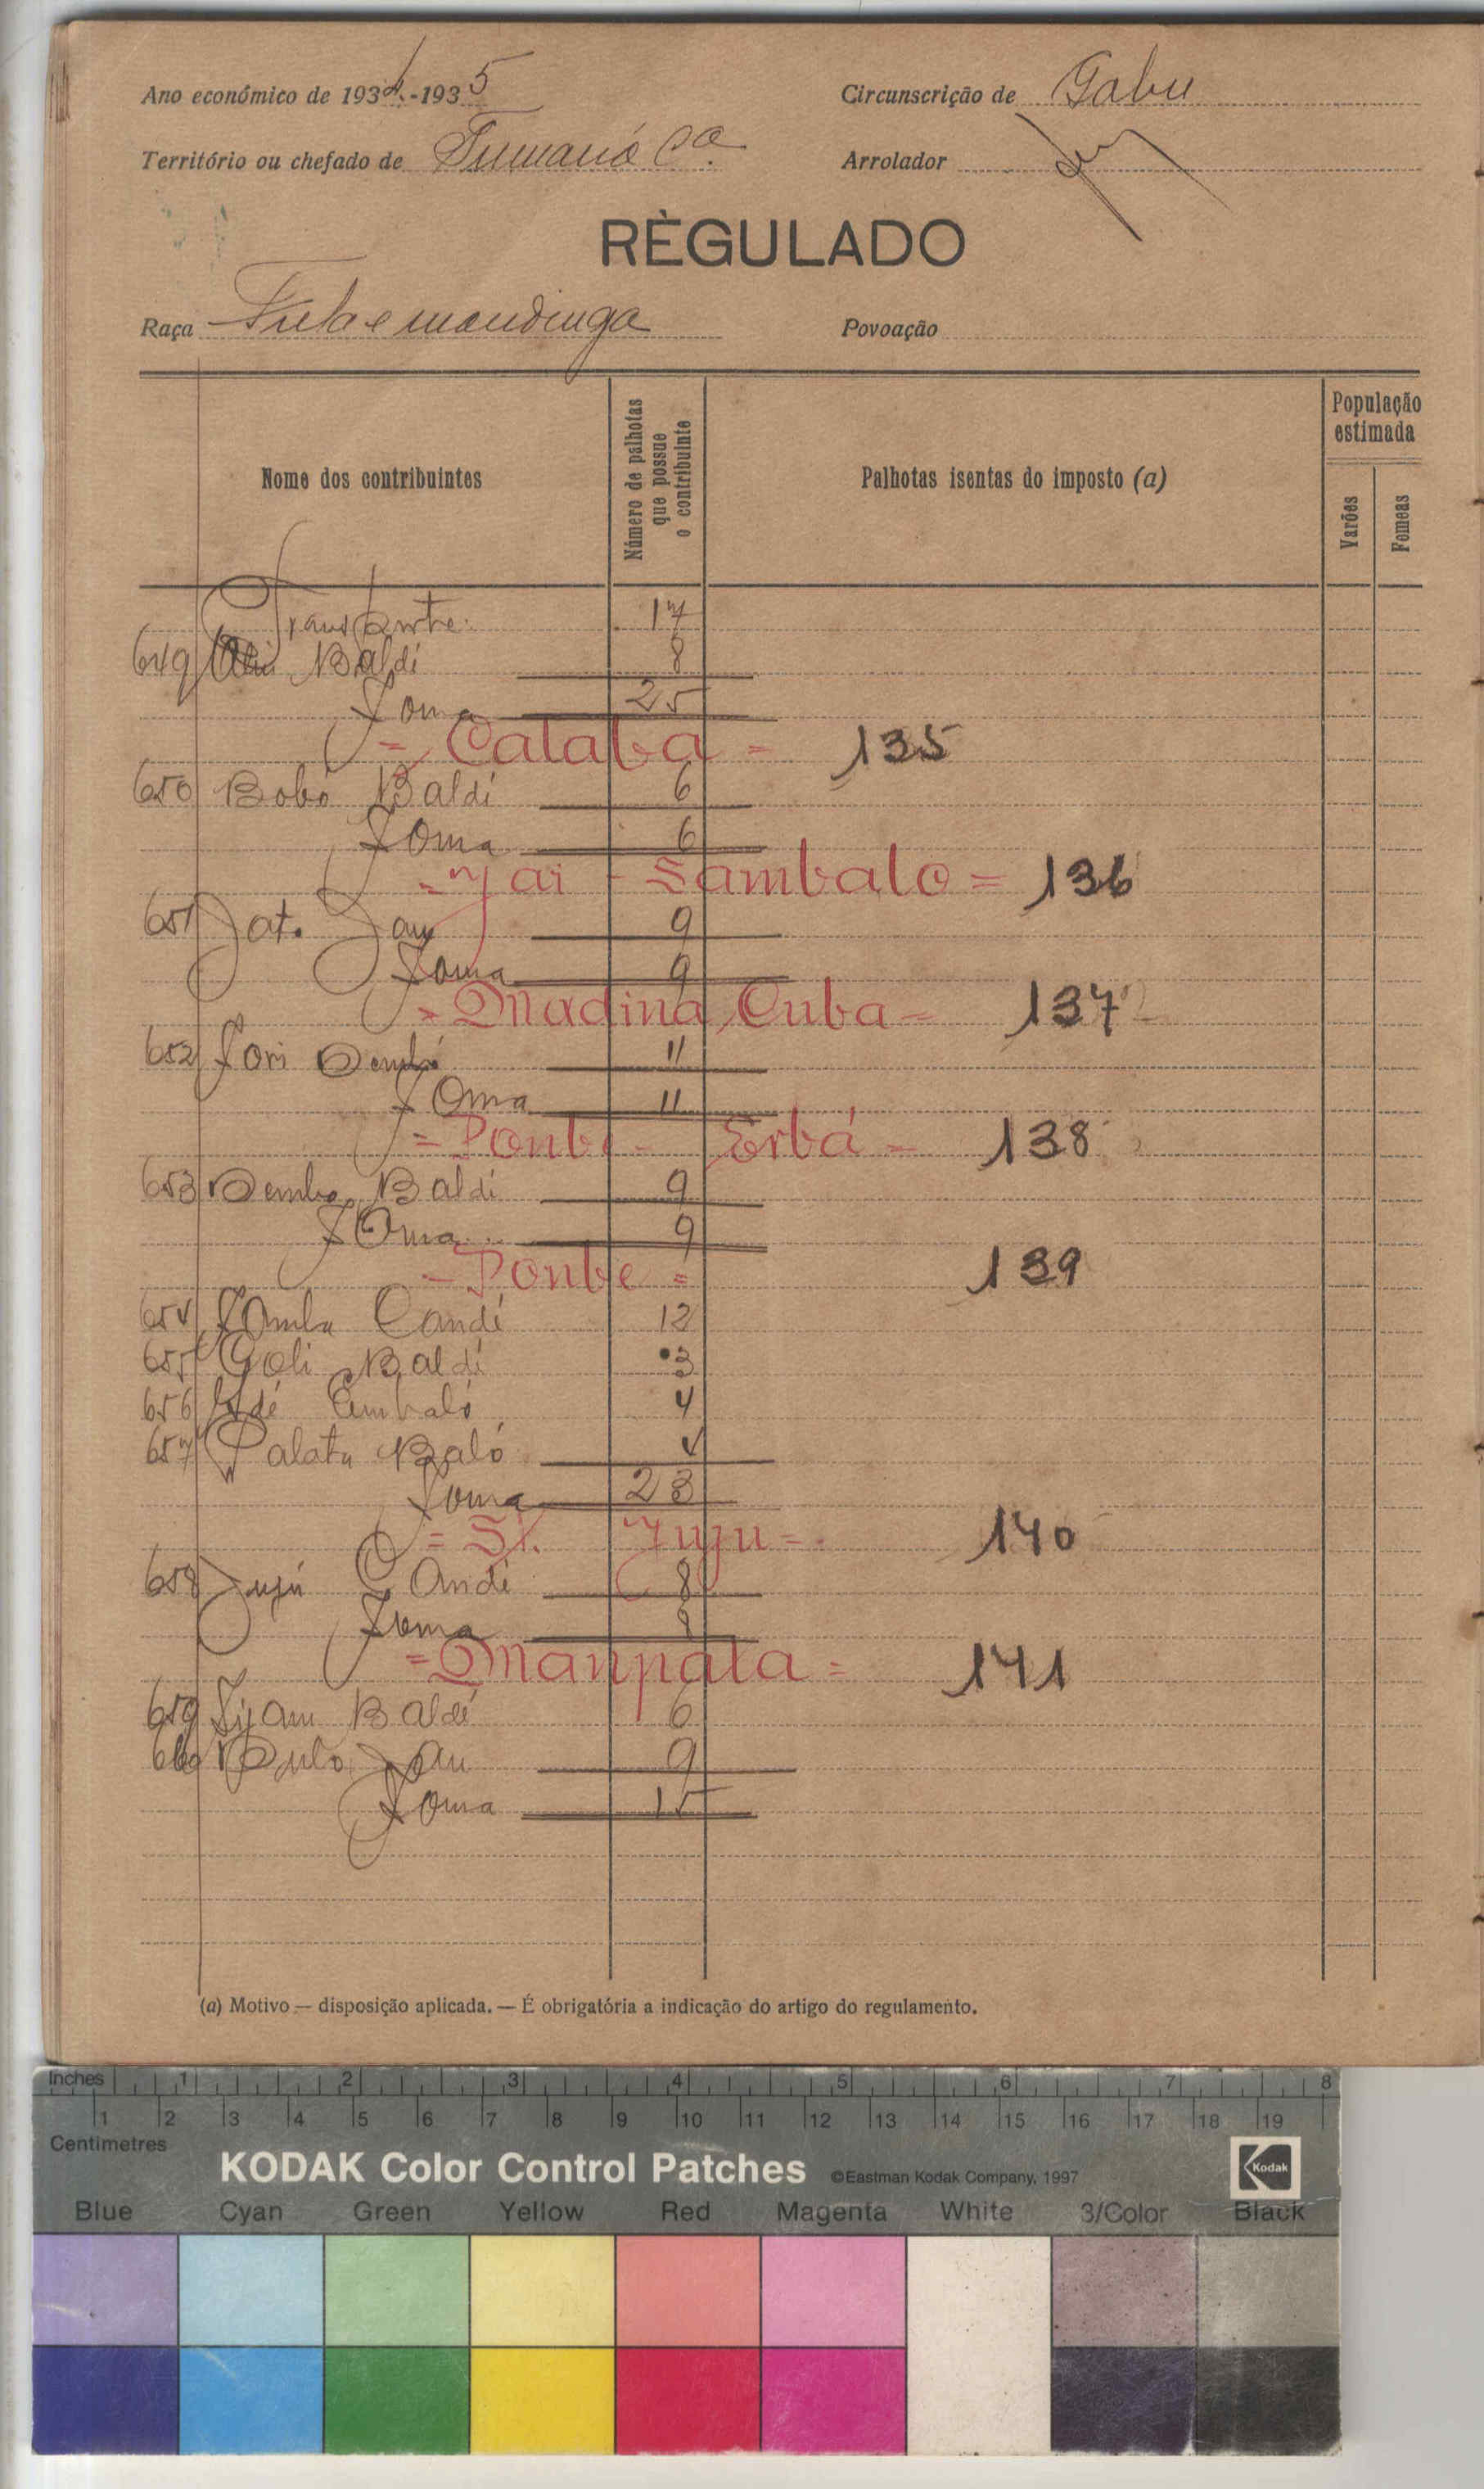 Ano económico de 1934-1935
Circunscrição de Gabu
Território ou chefado de Tumaná Ca.
Arrolador
RÈGULADO
Raça Fula e mandinga
Povoação
Nome dos contribuintes
Número de palhotas que possue o contribuinte
Palhotas isentas do imposto (a)
População estimada
Varões
Femeas
Transporte 17
649 Baldi 8
Soma 25
= Cataba = 135
650 Bobo Baldi 6
Soma 6
= Jai - Sambalo = 136
651 Jato Jau 9
Soma 9
= Madina Cuba = 137
652 Sori Dembó 11
Soma 11
= Sonbe - Erbá = 138
653 Dembo Baldi 9
Soma 9
= Sonbe = 139
654 Samba Candi 12
655 Goli Baldi 3
656 Embaló 4
657 Balo 4
Soma 23
= St. Juju = 140
658 Jujú Candi 8
Soma 8
= Manpata = 141
659 Baldé 6
660 Jau 9
Soma 15
(a) Motivo — disposição aplicada. — É obrigatória a indicação do artigo do regulamento.
Inches 1 2 3 4 5 6 7 8
1 2 3 4 5 6 7 8 9 10 11 12 13 14 15 16 17 18 19
Centimetres
KODAK Color Control Patches ©Eastman Kodak Company, 1997 Kodak
Blue Cyan Green Yellow Red Magenta White 3/Color Black